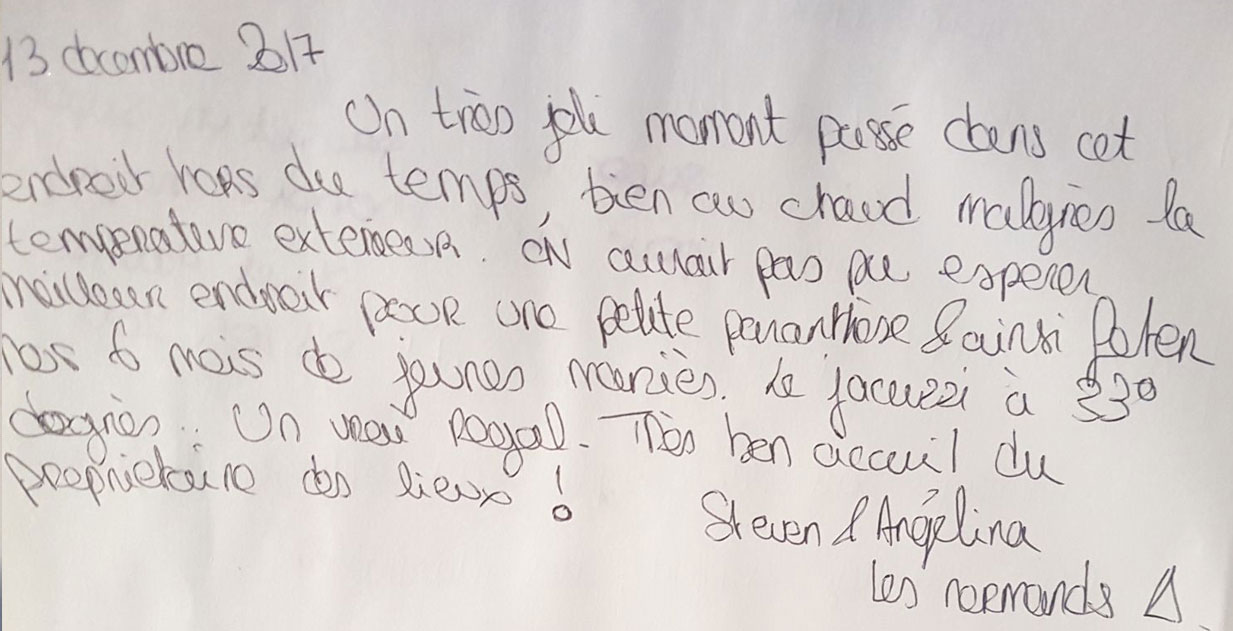 13 decembre 2017
Un très joli moment passé dans cet
endroit hors du temps, bien au chaud malgrès la
temperature exterieur. ON aurait pas pu esperer
meilleur endroit pour une petite paranthèse & ainsi feter
nos 6 mois de jeunes mariès. Le jacuzzi à 33°
degrès.. Un vrai regal. Très bon accueil du
proprietaire des lieux !
Steven & Angélina
Les normands